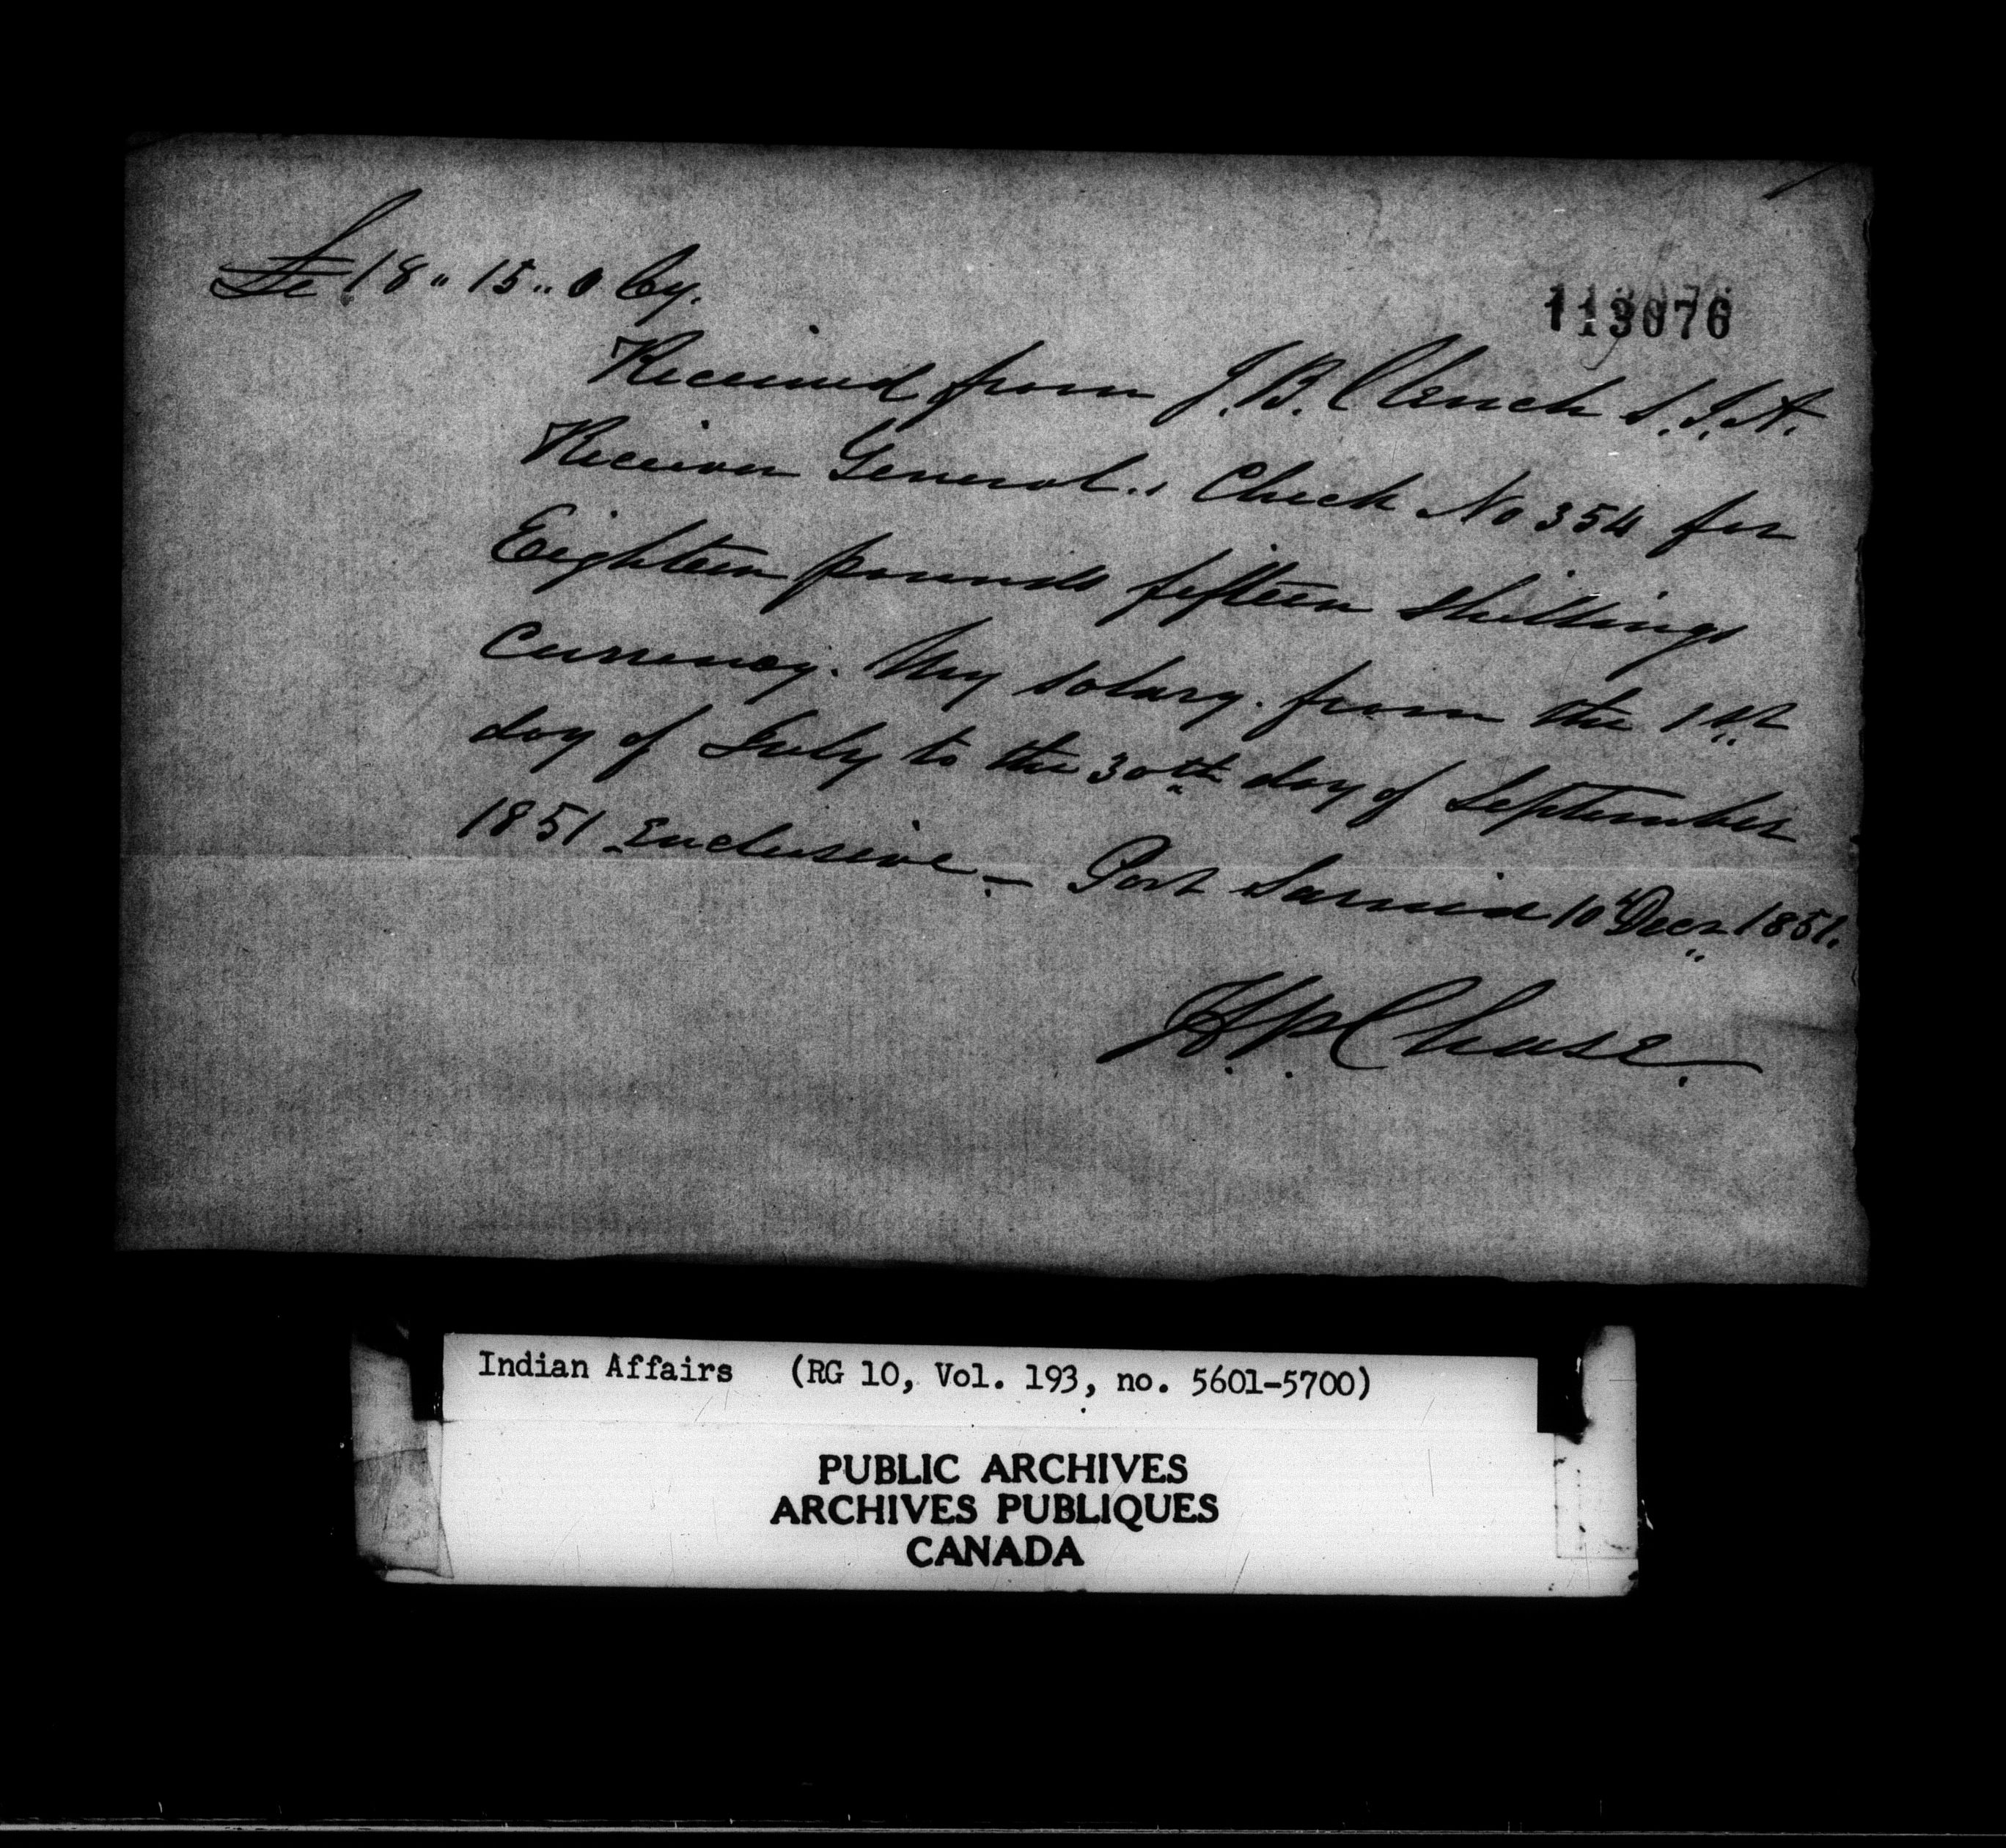 £18.. 15.. 0 Cy.
113076
Received from J.B. Clench S.I.A.
Receiver General.s Check No 354 for
Eighteen pounds fifteen shillings
Currency. My salary. from the 1st
day of July to the 30th day of September
1851 Enclusive. – Port Sarnia 10 Decr 1851.
H.P. Chase.
Indian Affairs (RG 10, Vol. 193, no. 5601-5700)
PUBLIC ARCHIVES
ARCHIVES PUBLIQUES
CANADA